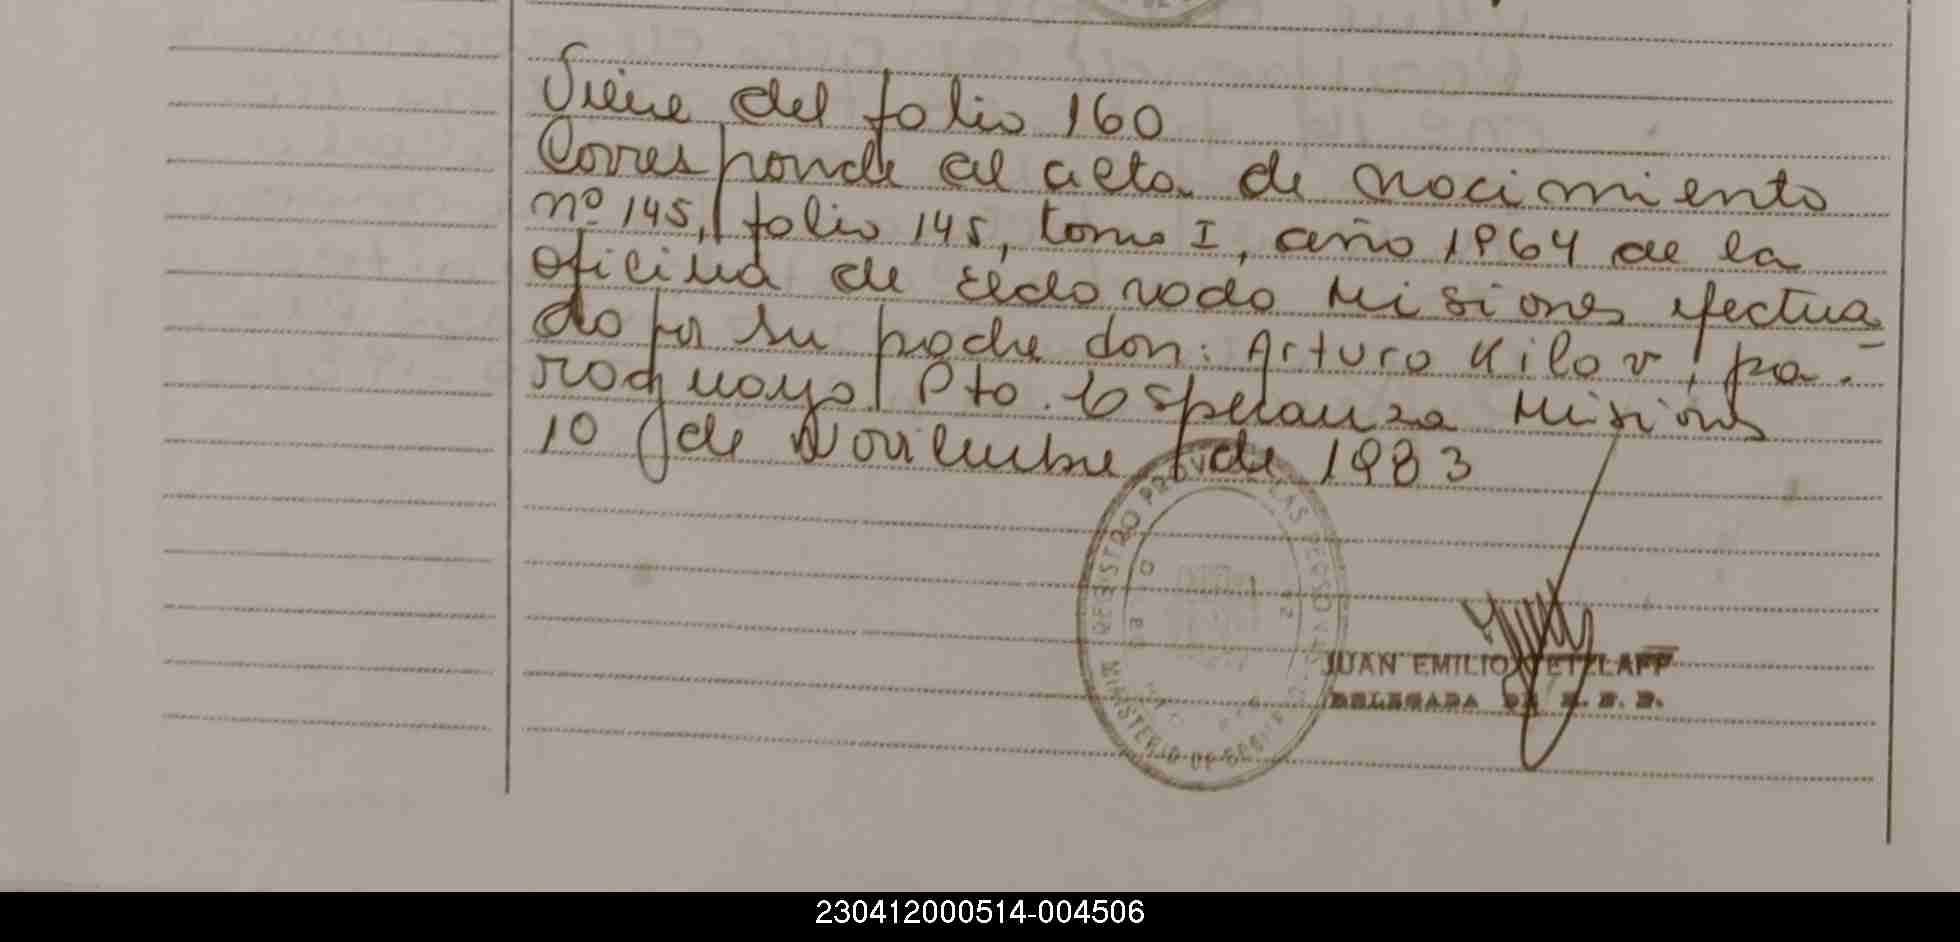 Viene del folio 160
Corresponde al acta de nacimiento
nº 145, folio 145, tomo I, año 1964 de la
oficina de eldorado Misiones efectua
do por su padre don: Arturo Kilov, pa-
raguayo, Pto. Esperanza Misiones
10 de Noviembre de 1983
REGISTRO PROVINCIAL DE LAS PERSONAS
MINISTERIO DE GOBIERNO
JUAN EMILIO TETZLAFF
DELEGADA DE R. P. P.
230412000514-004506